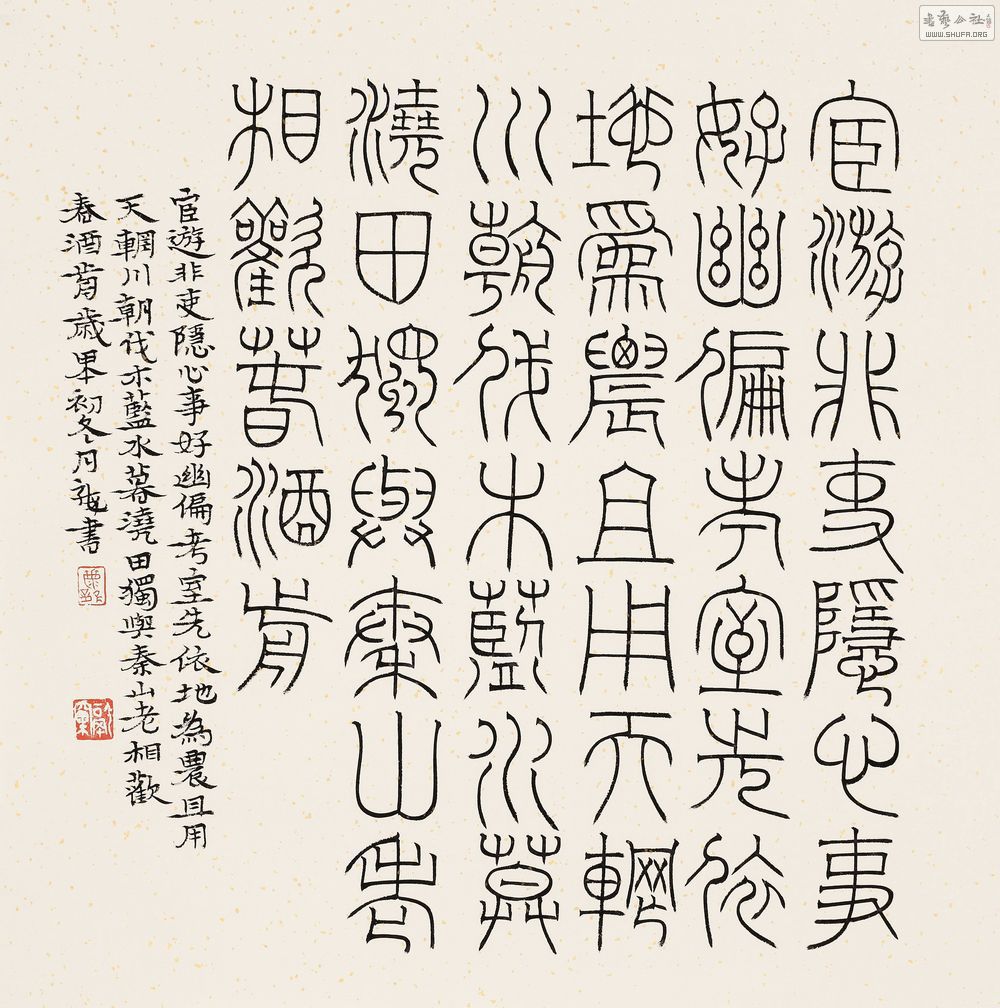 宦游非吏隱心事
好幽偏考室先依
地爲農且用天輞
川朝伐木藍水暮
澆田獨與秦山老
相歡春酒前
宦遊非吏隱心事好幽偏考室先依地為農且用
天輞川朝伐木藍水暮澆田獨與秦山老相歡
春酒前歲初冬月書
書藝公社
WWW.SHUFA.ORG